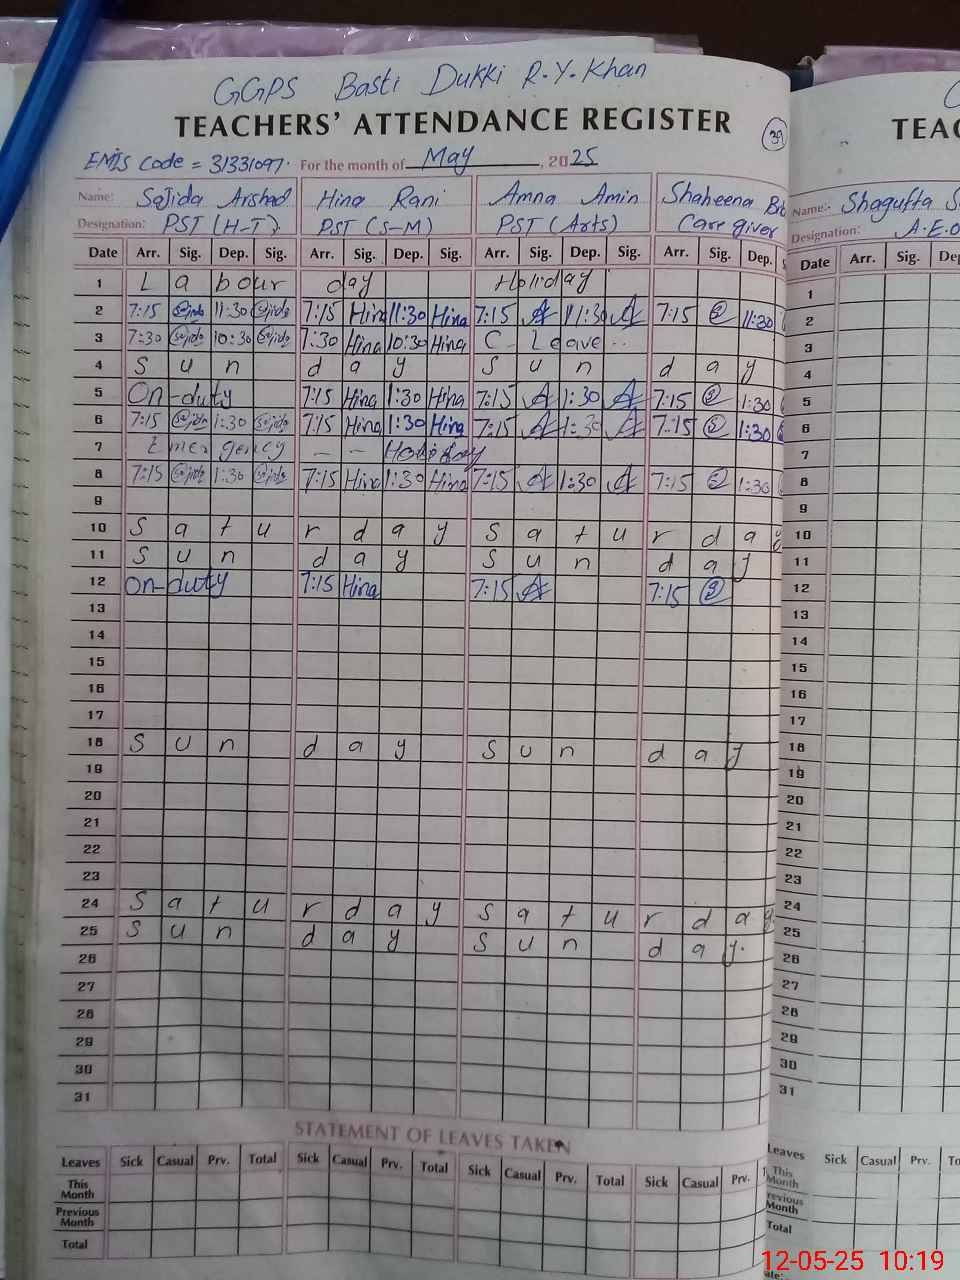 GGPS Basti Dukki R.Y.Khan
TEACHERS' ATTENDANCE REGISTER
39
EMIS Code = 31331097. For the month of May, 2025
Name: Sajida Arshad Hina Rani Amna Amin Shaheena
Designation: PST (H-T) PST (S-M) PST (Arts) Care giver
Date Arr. Sig. Dep. Sig. Arr. Sig. Dep. Sig. Arr. Sig. Dep. Sig. Arr. Sig. Dep.
1 Labour day Holiday
2 7:15 Sajida 11:30 Sajida 7:15 Hina 11:30 Hina 7:15 A 11:30 A 7:15 S 11:30
3 7:30 Sajida 10:30 Sajida 7:30 Hina 10:30 Hina C- Leave..
4 S u n d a y S u n d a y
5 On-duty 7:15 Hina 1:30 Hina 7:15 A 1:30 A 7:15 S 1:30
6 7:15 Sajida 1:30 Sajida 7:15 Hina 1:30 Hina 7:15 A 1:30 A 7:15 S 1:30
7 Emergency - - Holiday
8 7:15 Sajida 1:30 Sajida 7:15 Hina 1:30 Hina 7:15 A 1:30 A 7:15 S 1:30
9
10 S a t u r d a y S a t u r d a y
11 S u n d a y S u n d a y
12 On-duty 7:15 Hina 7:15 A 7:15 S
13
14
15
16
17
18 S u n d a y S u n d a y
19
20
21
22
23
24 S a t u r d a y S a t u r d a y
25 S u n d a y S u n d a y.
26
27
28
29
30
31
STATEMENT OF LEAVES TAKEN
Leaves Sick Casual Prv. Total Sick Casual Prv. Total Sick Casual Prv. Total Sick Casual Prv.
This Month
Previous Month
Total
TEAC
Name:- Shagufta
Designation: A.E.O
Date Arr. Sig. Dep
1
2
3
4
5
6
7
8
9
10
11
12
13
14
15
16
17
18
19
20
21
22
23
24
25
26
27
28
29
30
31
Leaves Sick Casual Prv. To
This Month
Previous Month
Total
12-05-25 10:19